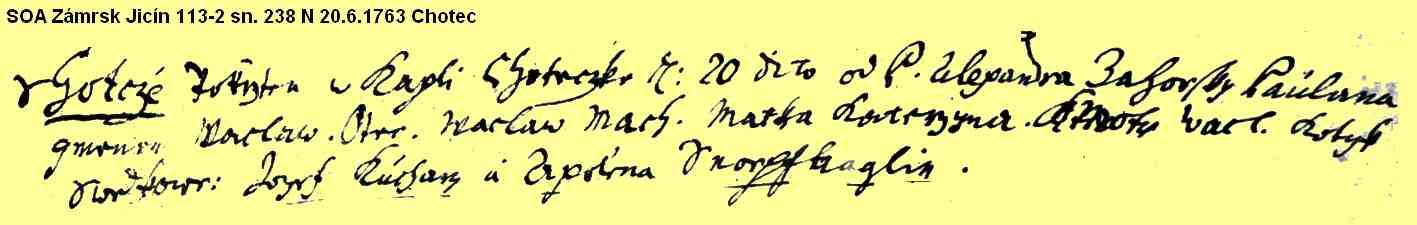 SOA Zámrsk Jicín 113-2 sn. 238 N 20.6.1763 Chotec
Chotcze Pokrzten w Kapli Choteczke d: 20 dito od P. Alexandra Zahorsky Paulana
gmenem Waclaw. Otec. Waclaw Mach. Matka Katerzyna. Kmotr Wacl. Kotyk
Swedkowe: Jozef Kucharz a